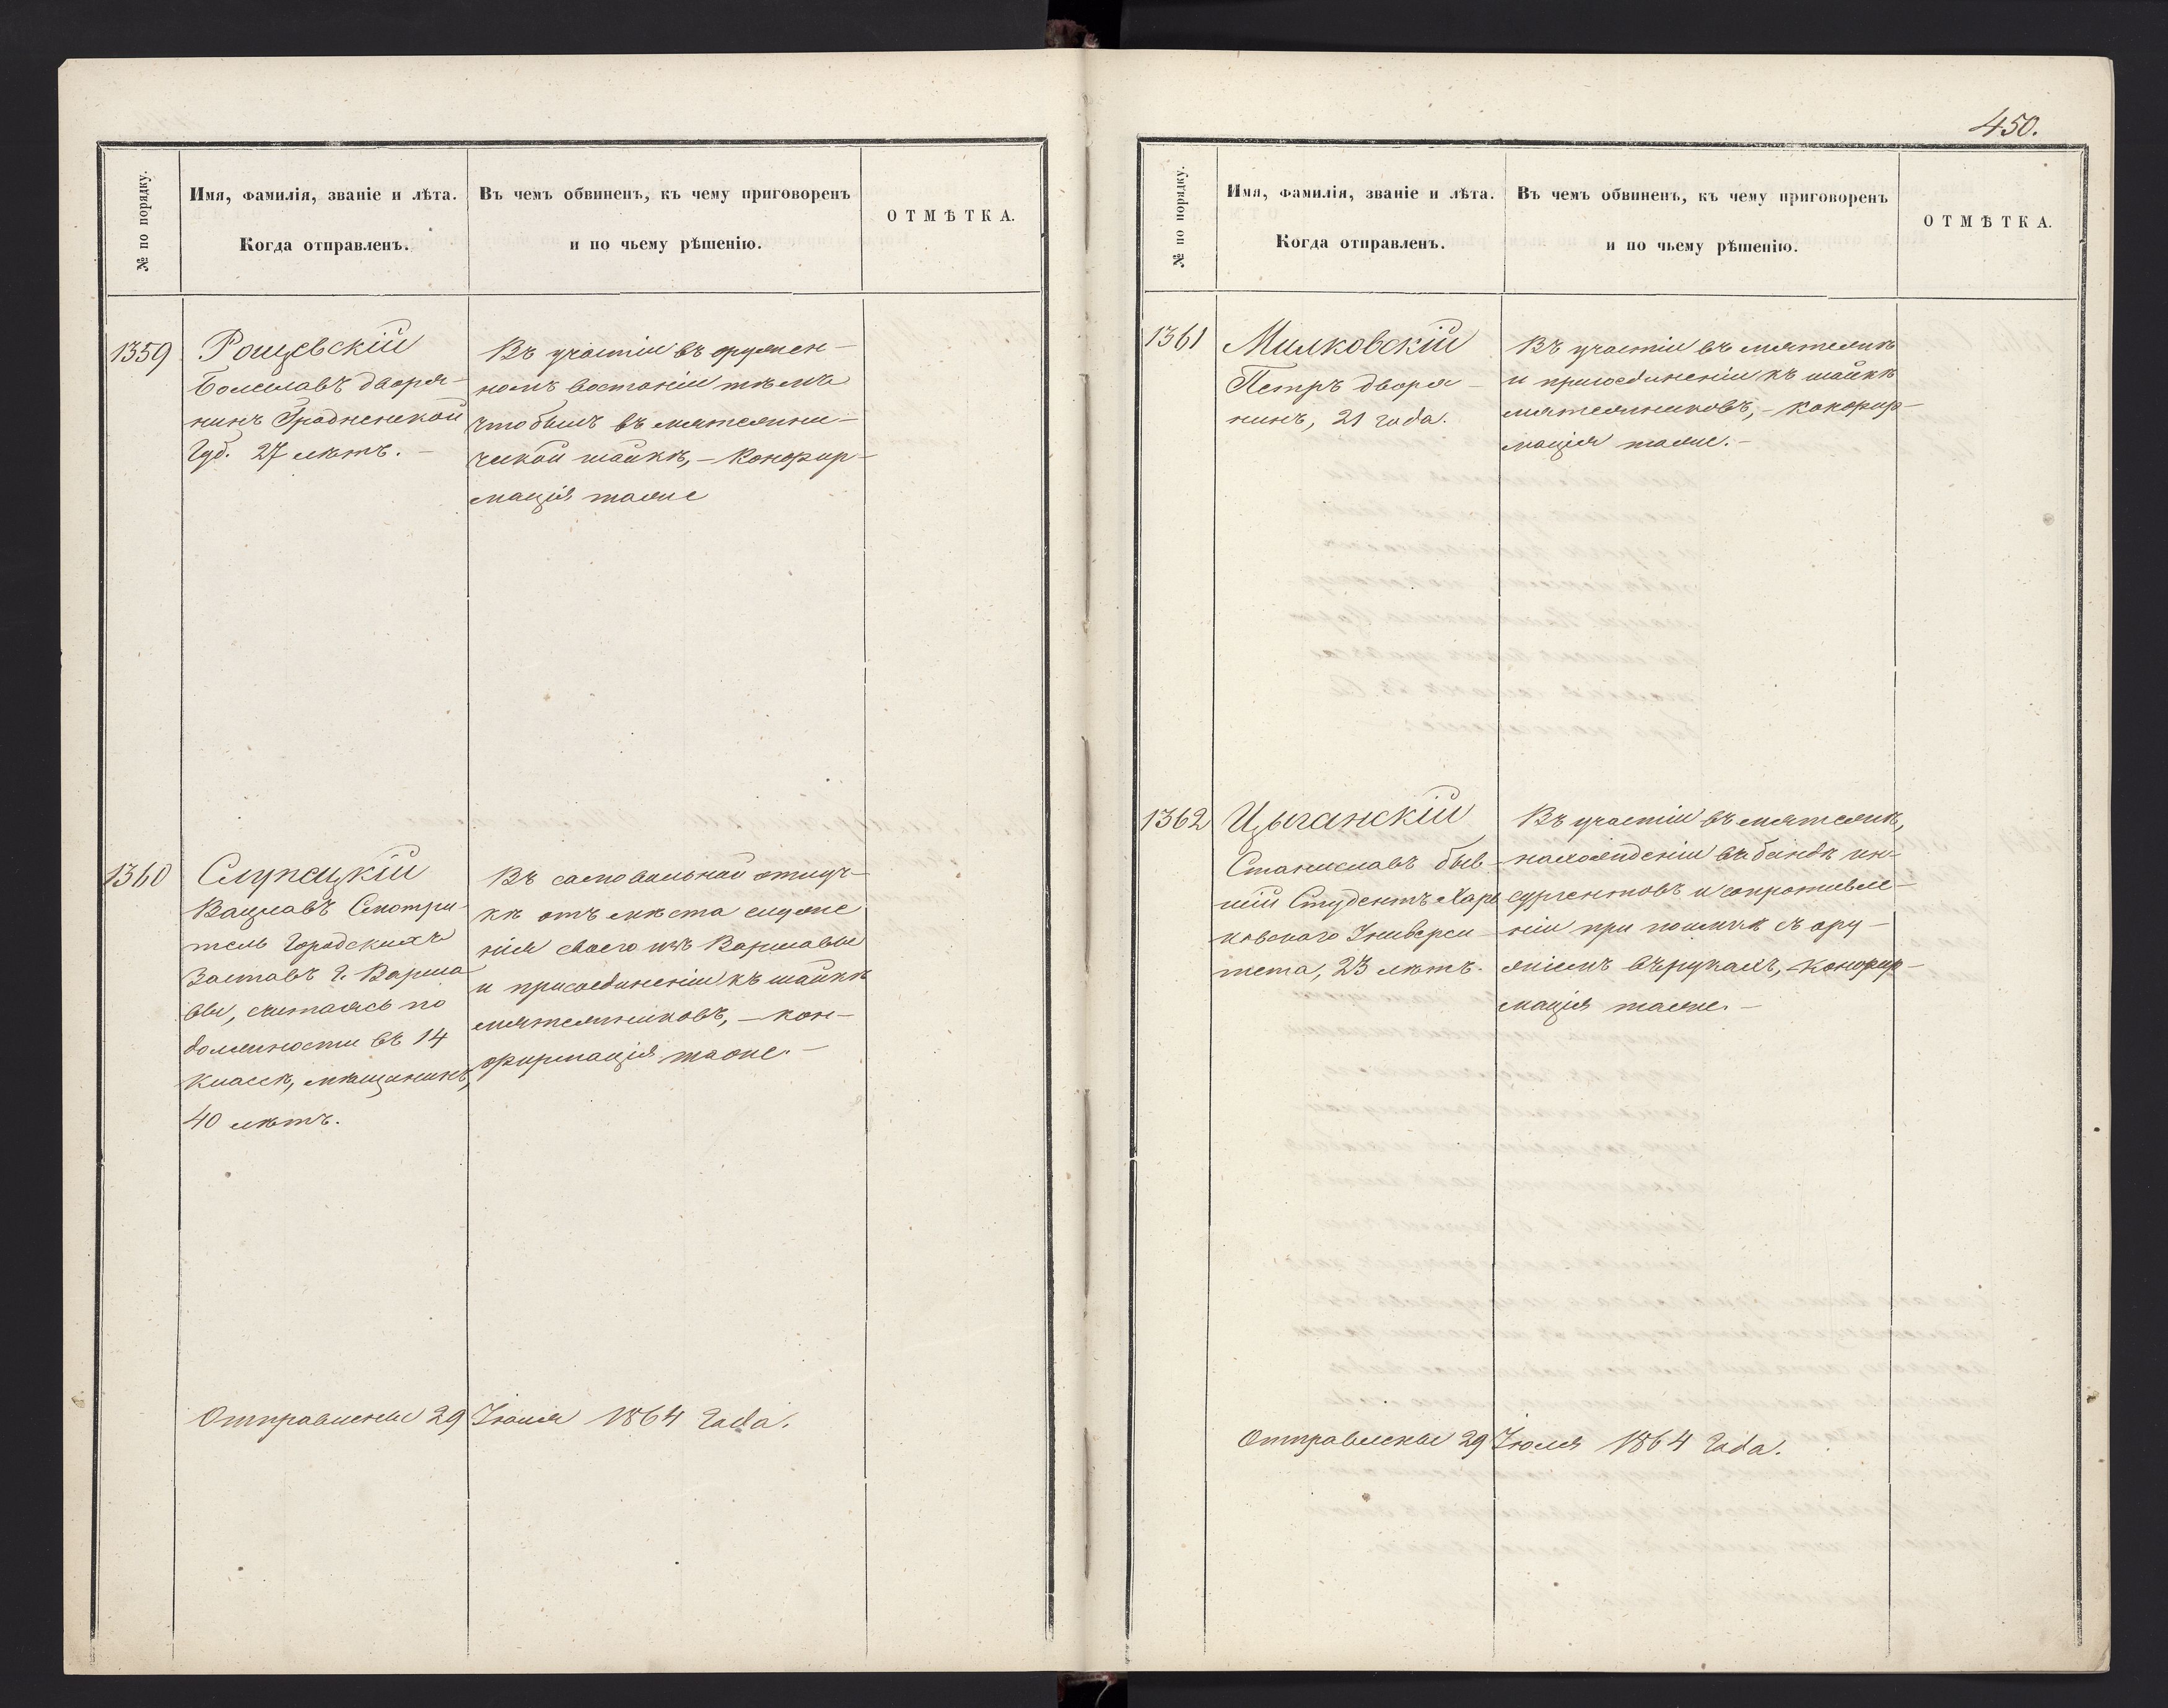 № по порядку.
Имя, фамилія, званіе и лѣта.
Когда отправленъ.
Въ чемъ обвиненъ, къ чему приговоренъ
и по чьему рѣшенію.
ОТМѢТКА.
1359
Рощевскій
Болеславъ дворя-
нинъ Гродненской
Губ. 27 лѣтъ. -
Въ участіи въ оружен-
номъ востаніи тѣмъ
что былъ въ мятежни-
ческой шайкѣ, - Конфир-
мація таже
1360
Слупецкій
Вацлавъ Смотри-
тель Городскихъ
Заставъ г. Варша-
вы, считаясь по
должности въ 14
классѣ, мѣщанинъ,
40 лѣтъ.
Въ самовольной отлуч-
кѣ отъ мѣста служе
нія своего изъ Варшавы
и присоединеніи къ шайкѣ
мятежниковъ, - кон-
фирмація таже. -
Отправлены 29 Іюля 1864 Года.
450.
№ по порядку.
Имя, фамилія, званіе и лѣта.
Когда отправленъ.
Въ чемъ обвиненъ, къ чему приговоренъ
и по чьему рѣшенію.
ОТМѢТКА.
1361
Милковскій
Петръ дворя-
нинъ, 21 года.
Въ участіи въ мятежѣ
и присоединеніи къ шайкѣ
мятежниковъ, - конфир-
мація таже. -
1362
Цыганскій
Станиславъ быв-
шій Студентъ Харь
ковскаго Универси-
тета, 23 лѣтъ.
Въ участіи въ мятежѣ,
нахожденіи въ бандѣ ин-
сургентовъ и сопротивле-
ніи при поимкѣ съ ору-
жіемъ въ рукахъ, - конфир-
мація таже. -
Отправлены 29 Іюля 1864 Года.